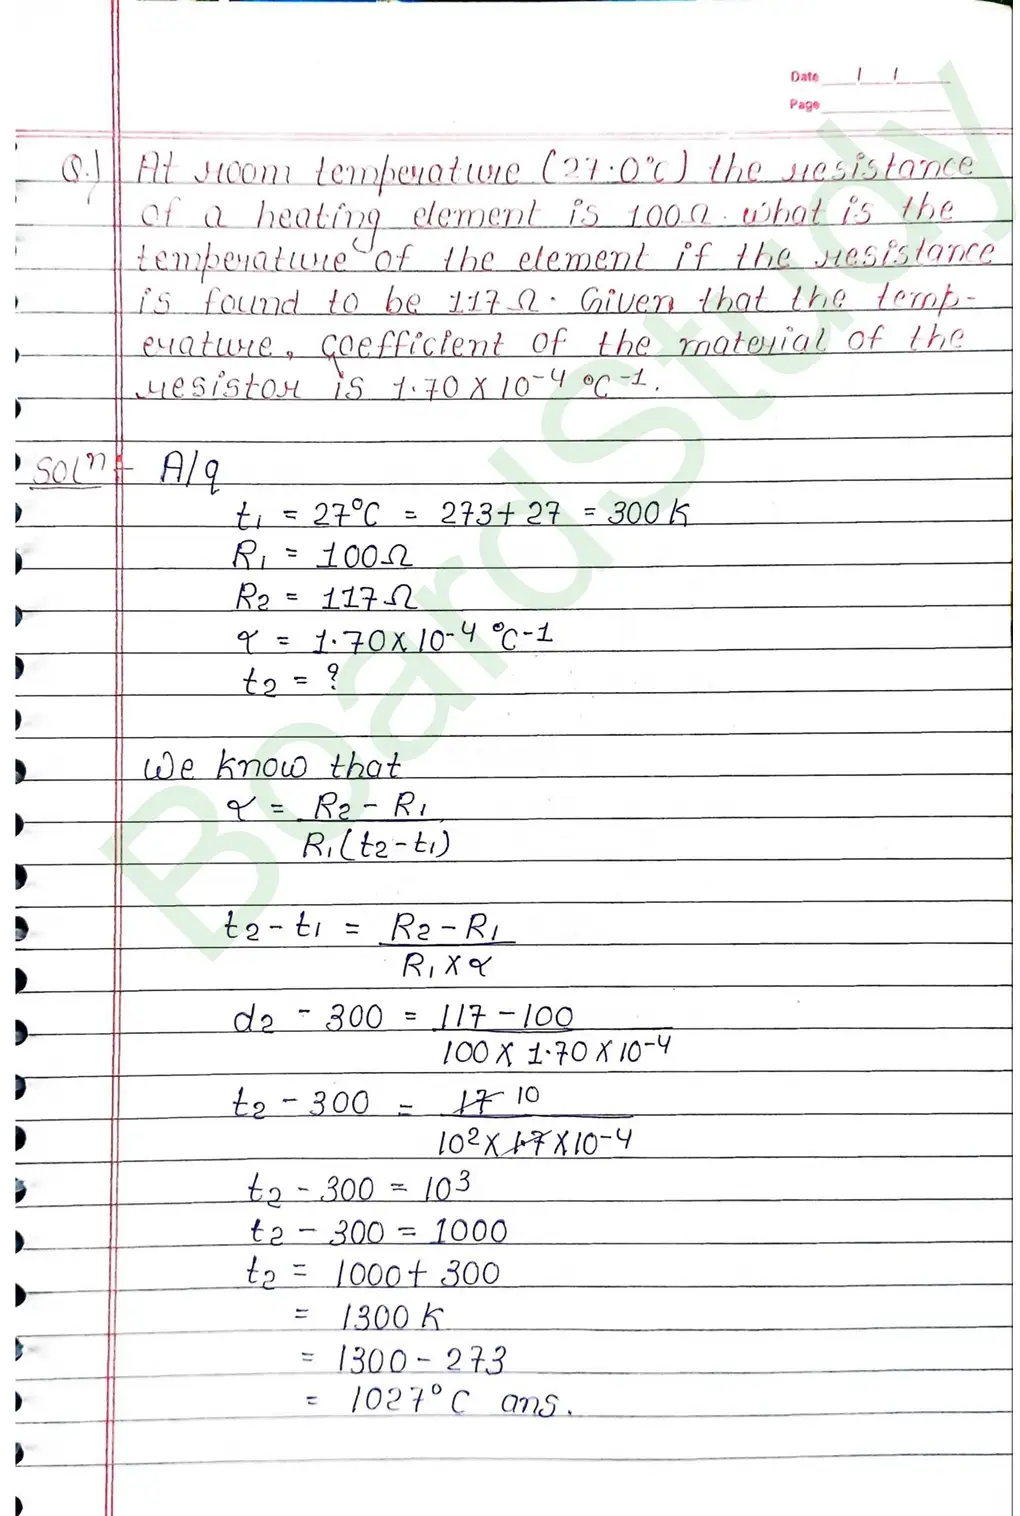 Date / /
Page
Q.) At room temperature (27.0°C) the resistance
of a heating element is 100Ω. what is the
temperature of the element if the resistance
is found to be 117Ω. Given that the temp-
erature, coefficient of the material of the
resistor is 1.70 X 10-4 °C-1.
Solⁿ:- A/q
t1 = 27°C = 273+27 = 300K
R1 = 100Ω
R2 = 117Ω
α = 1.70X10-4 °C-1
t2 = ?
We know that
α = R2 - R1
R1(t2-t1)
t2-t1 = R2-R1
R1 X α
d2 - 300 = 117-100
100 X 1.70 X 10-4
t2 - 300 = 17 10
10² X 1.7 X 10-4
t2 - 300 = 10³
t2 - 300 = 1000
t2 = 1000+ 300
= 1300 K
= 1300 - 273
= 1027°C ans.
BoardStudy